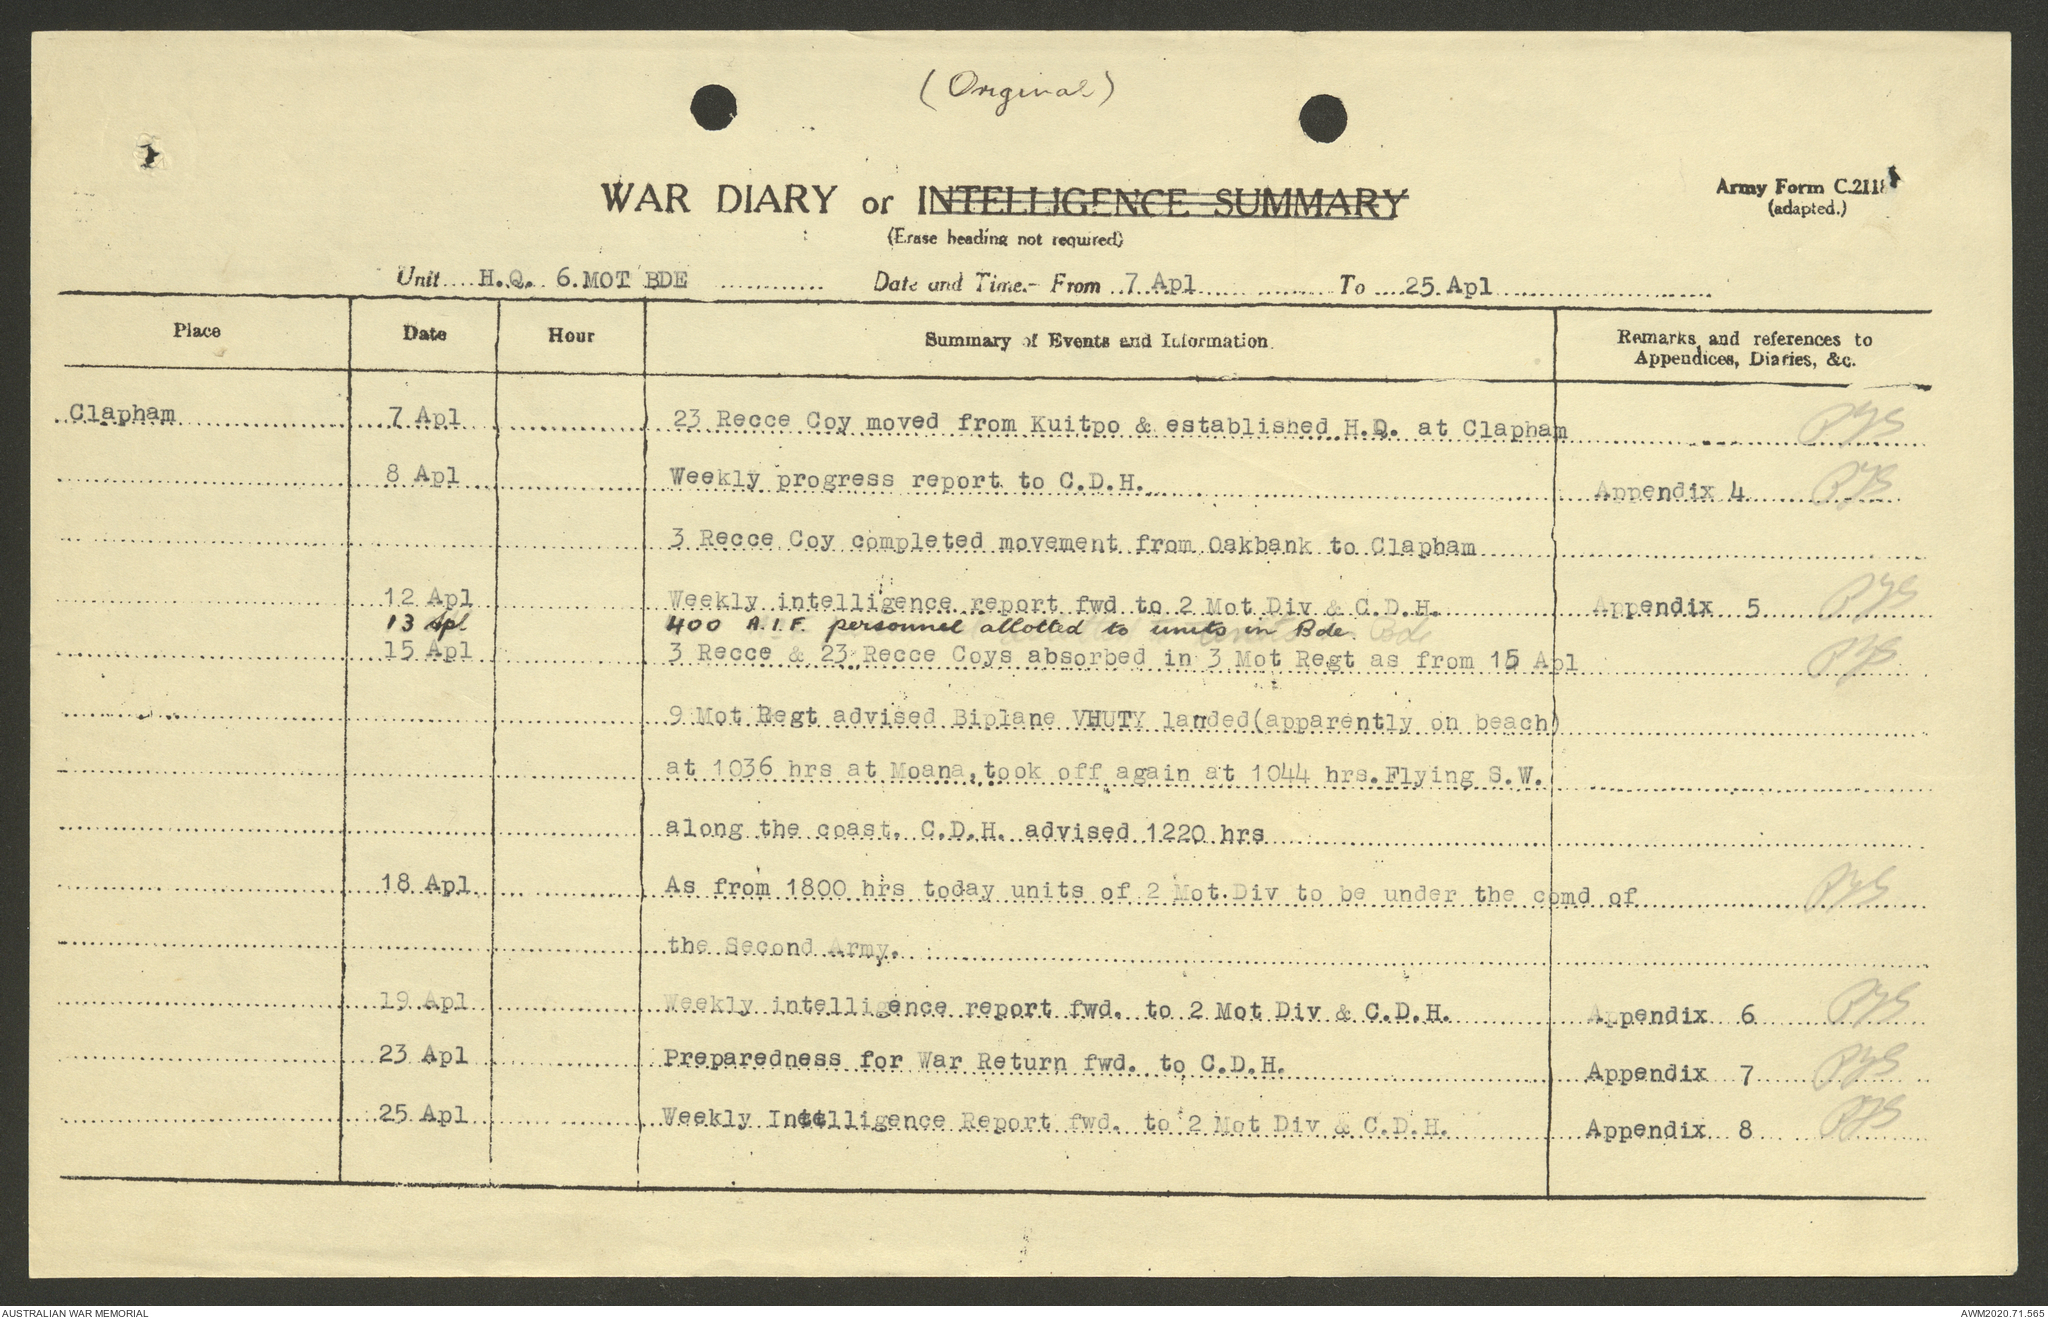 (Original)
WAR DIARY or INTELLIGENCE SUMMARY
(Erase heading not required)
Army Form C.2118
(adapted.)
Unit H.Q. 6 MOT BDE Date and Time.- From 7 Apl To 25 Apl
Place Date Hour Summary of Events and Information Remarks and references to Appendices, Diaries, &c.
Clapham 7 Apl 23 Recce Coy moved from Kuitpo & established H.Q. at Clapham
8 Apl Weekly progress report to C.D.H. Appendix 4
3 Recce Coy completed movement from Oakbank to Clapham
12 Apl Weekly intelligence report fwd to 2 Mot Div & C.D.H. Appendix 5
13 Apl 400 A.I.F. personnel allotted to units in Bde.
15 Apl 3 Recce & 23 Recce Coys absorbed in 3 Mot Regt as from 15 Apl
9 Mot Regt advised Biplane VHUTY landed(apparently on beach)
at 1036 hrs at Moana, took off again at 1044 hrs. Flying S.W.
along the coast. C.D.H. advised 1220 hrs
18 Apl As from 1800 hrs today units of 2 Mot.Div to be under the comd of
the Second Army.
19 Apl Weekly intelligence report fwd. to 2 Mot Div & C.D.H. Appendix 6
23 Apl Preparedness for War Return fwd. to C.D.H. Appendix 7
25 Apl Weekly Intelligence Report fwd. to 2 Mot Div & C.D.H. Appendix 8
AUSTRALIAN WAR MEMORIAL
AWM2020.71.565